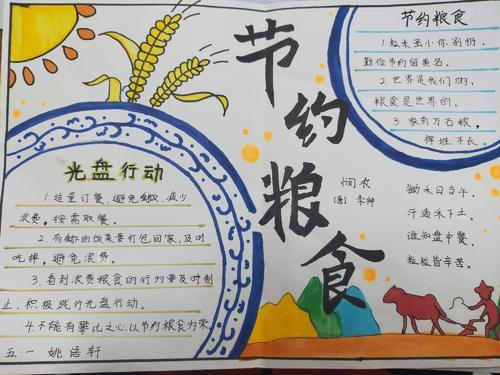 节约粮食
节约粮食
1.粒米虽小你别扔,
勤俭节约留美名。
2.世界是我们的,
粮食是世界的。
3.家有万石粮,
挥堆不长
悯农
(唐) 李绅
锄禾日当午,
汗滴禾下土。
谁知盘中餐,
粒粒皆辛苦。
光盘行动
1.适量订餐,避免剩餐,减少
浪费。按需取餐。
2.有剩的饭菜要打包回家,及时
吃掉,避免浪费。
3.看到浪费粮食的行为要及时制
止,积极践行光盘行动。
4.不能有攀比之心,以节约粮食为荣
五·一 姚语轩